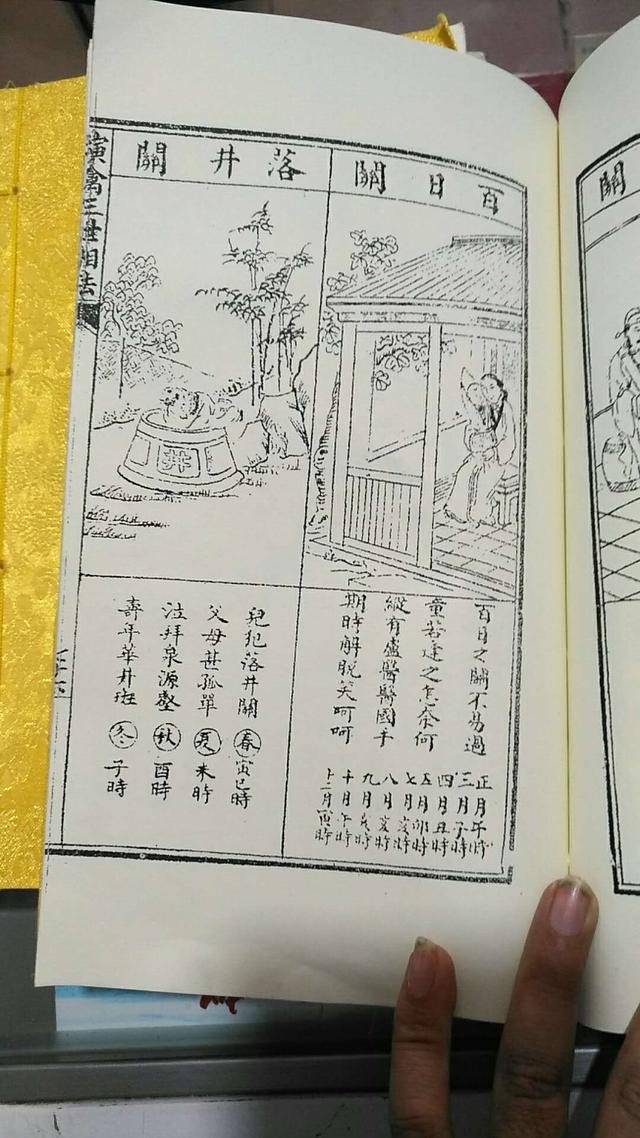 百日關
百日之關不易過
童若逢之怎奈何
縱有盧醫醫國手
期時解脱笑呵呵
正月午時
三月子時
四月丑時
五月卯時
七月亥時
八月亥時
九月亥時
十月午時
十二月寅時
落井關
井
兒犯落井關
父母甚孤單
泣拜泉源壑
壽年華井斑
春 寅巳時
夏 未時
秋 酉時
冬 子時
演禽三世相法
關